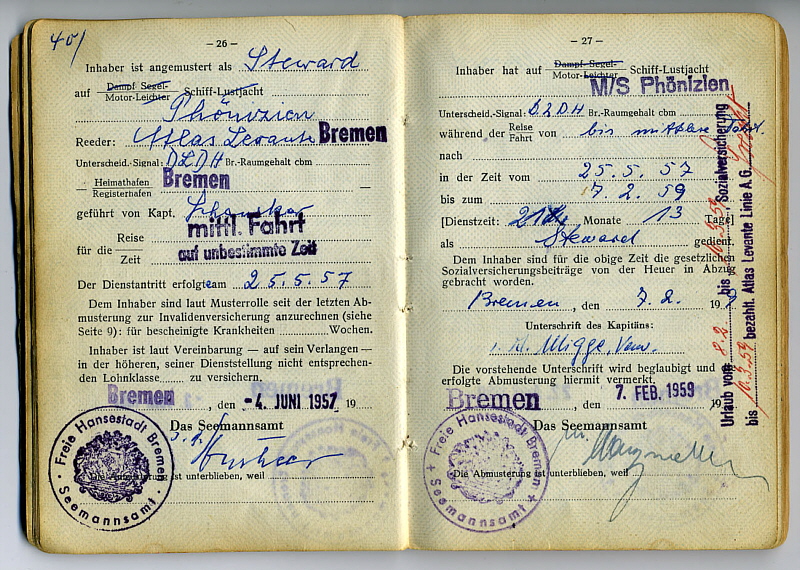 40/
– 26 –
Inhaber ist angemustert als Steward
auf Dampf- Segel- Motor-Leichter Schiff-Lustjacht
Phönizien
Reeder: Atlas Levante Bremen
Unterscheid.-Signal: DLDH Br.-Raumgehalt cbm
Heimathafen Registerhafen Bremen
geführt von Kapt.
mittl. Fahrt
für die Reise Zeit auf unbestimmte Zeit
Der Dienstantritt erfolgte am 25.5.57
Dem Inhaber sind laut Musterrolle seit der letzten Ab-
musterung zur Invalidenversicherung anzurechnen (siehe
Seite 9): für bescheinigte Krankheiten Wochen.
Inhaber ist laut Vereinbarung — auf sein Verlangen —
in der höheren, seiner Dienststellung nicht entsprechen-
den Lohnklasse zu versichern.
Bremen, den -4. JUNI 1957 19
Das Seemannsamt
Freie Hansestadt Bremen
Seemannsamt
Die Anmusterung ist unterblieben, weil
– 27 –
Inhaber hat auf Dampf- Segel- Motor-Leichter Schiff-Lustjacht
M/S Phönizien
Unterscheid.-Signal: DLDH Br.-Raumgehalt cbm
während der Reise Fahrt von bis mittlere Fahrt.
nach
in der Zeit vom 25.5.57
bis zum 7.2.59
[Dienstzeit: Monate 13 Tage]
als Steward gedient.
Dem Inhaber sind für die obige Zeit die gesetzlichen
Sozialversicherungsbeiträge von der Heuer in Abzug
gebracht worden.
Bremen, den 7.2. 19
Unterschrift des Kapitäns:
Die vorstehende Unterschrift wird beglaubigt und
erfolgte Abmusterung hiermit vermerkt.
Bremen, den 7. FEB. 1959 19
Das Seemannsamt
Freie Hansestadt Bremen
Seemannsamt
Die Abmusterung ist unterblieben, weil
Urlaub vom 8.2. bis 10.3.59 Sozialversicherung
bis 10.3.59 bezahlt. Atlas Levante Linie A.G.